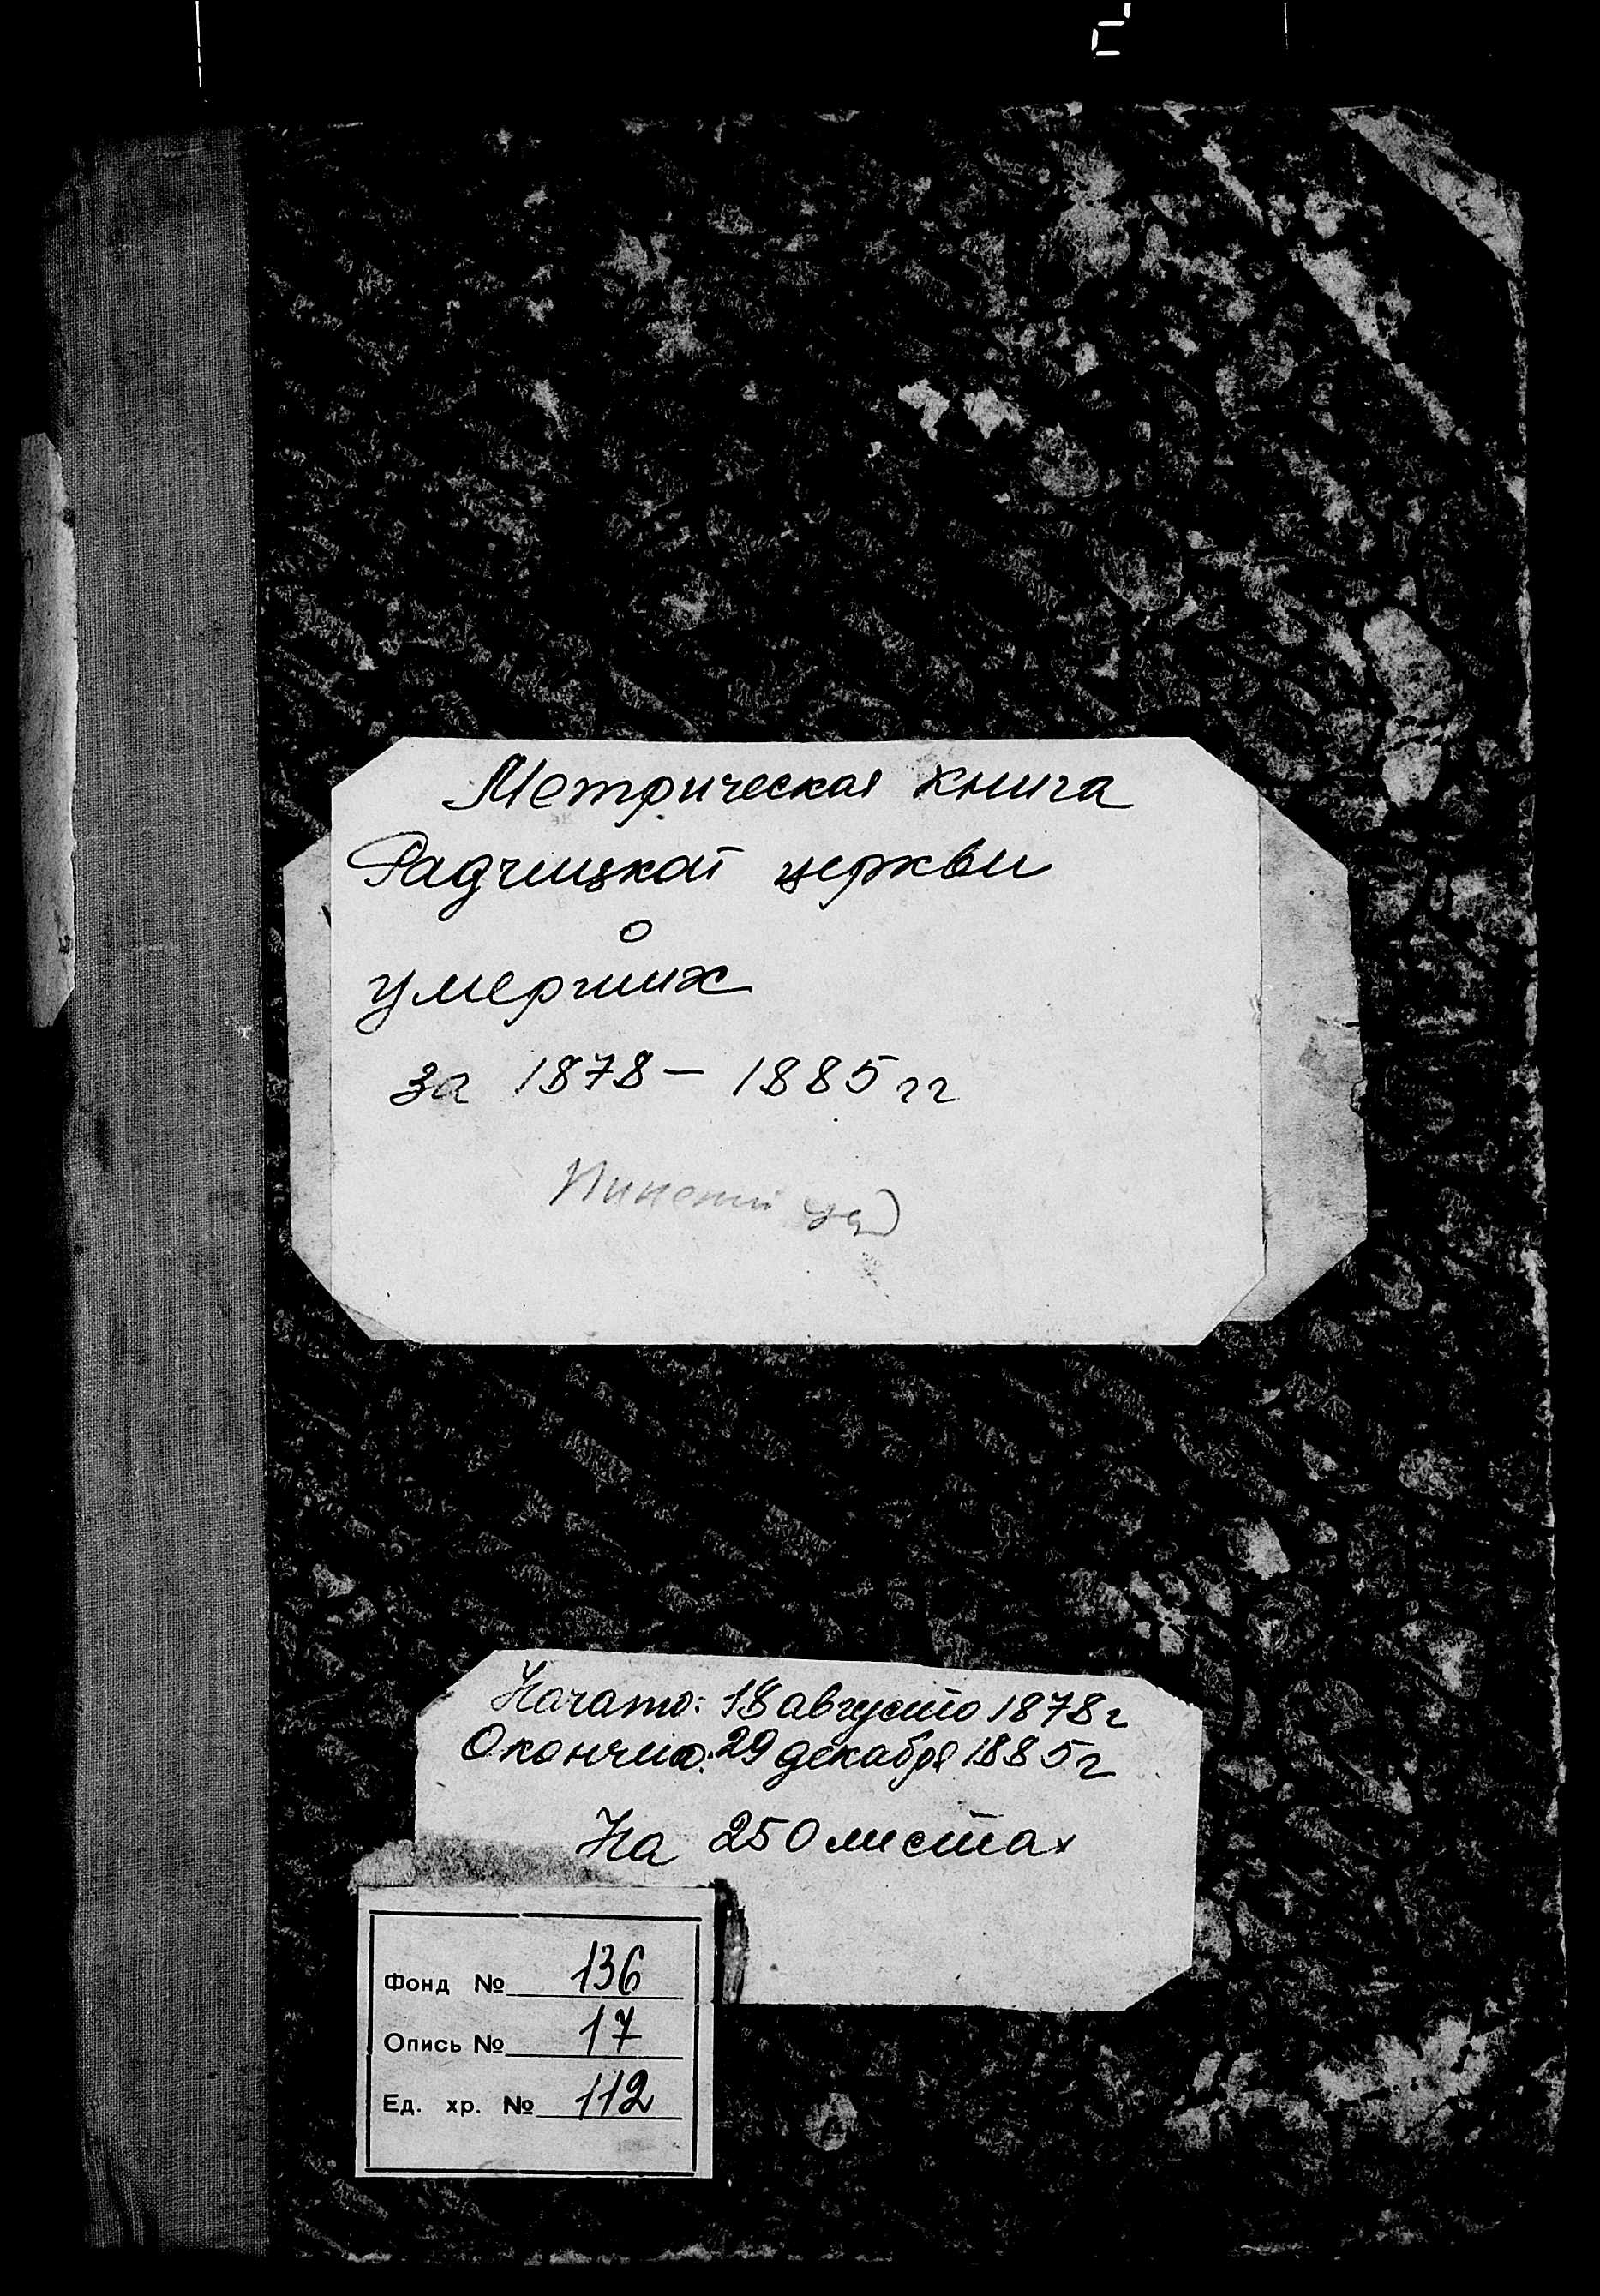 Метрическая книга
Радчицкой церкви
о
умерших
за 1878 – 1885 гг
Пинский уезд
Начато: 18 августа 1878 г
Окончено: 29 декабря 1885 г
На 250 листах
Фонд № 136
Опись № 17
Ед. хр. № 112